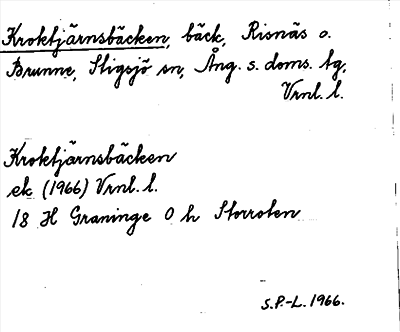 Kroktjärnsbäcken, bäck, Risnäs o.
Brunne, Stigsjö sn, Ång. s. doms. tg,
Vrnl. l.
Kroktjärnsbäcken
ek (1966) Vrnl. l.
18 H Graninge O h Storroten
S.P.-L. 1966.